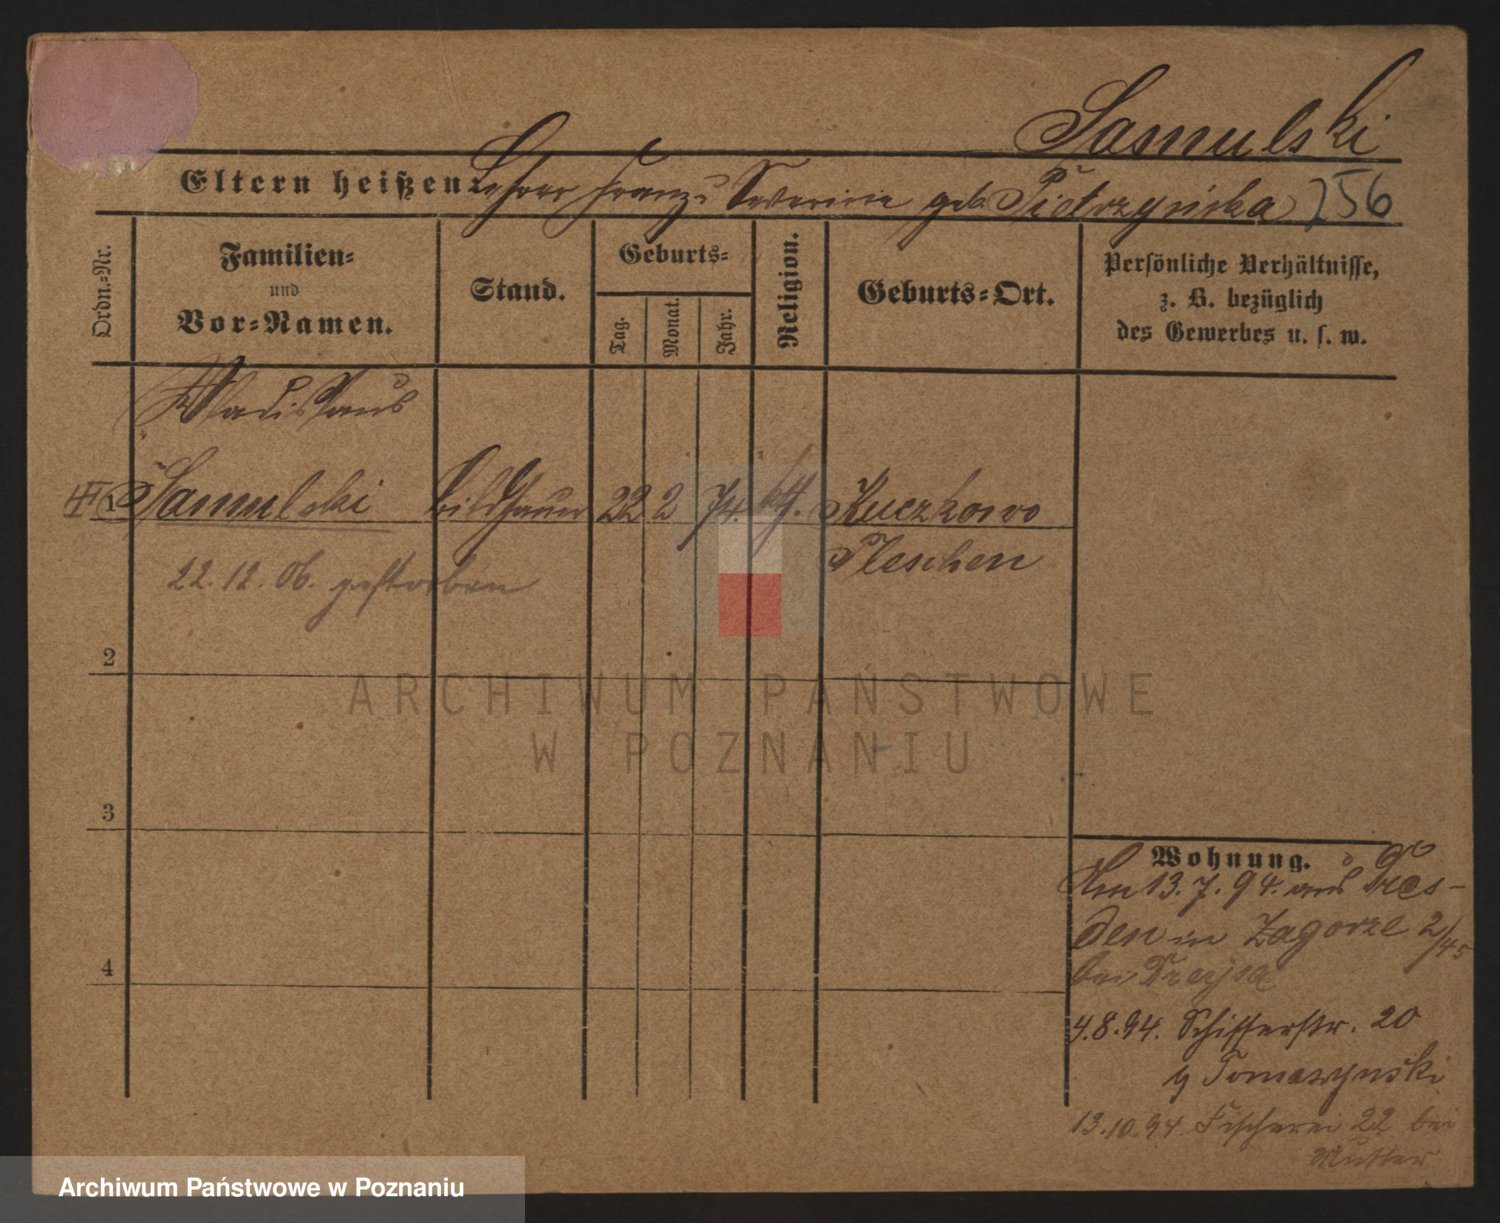 Samulski
Eltern heißen: Lehrer Franz u Severine geb. Pietrzyńska 256
Ordn.-Nr.
Familien-
und
Vor-Namen.
Stand.
Geburts-
Tag.
Monat.
Jahr.
Religion.
Geburts-Ort.
Persönliche Verhältnisse,
z. B. bezüglich
des Gewerbes u. s. w.
Wladislaus
1 Samulski Bildhauer 22 2 74. kth. Kuczkowo
Pleschen
22.12.06. gestorben
2
3
4
Wohnung.
Am 13.7.94. aus Dres-
den in Zagorze 2/45
bei
4.8.94. Schifferstr. 20
b/ Tomaszynski
13.10.94 Fischerei 22 bei
Mutter
ARCHIWUM PAŃSTWOWE
W POZNANIU
Archiwum Państwowe w Poznaniu